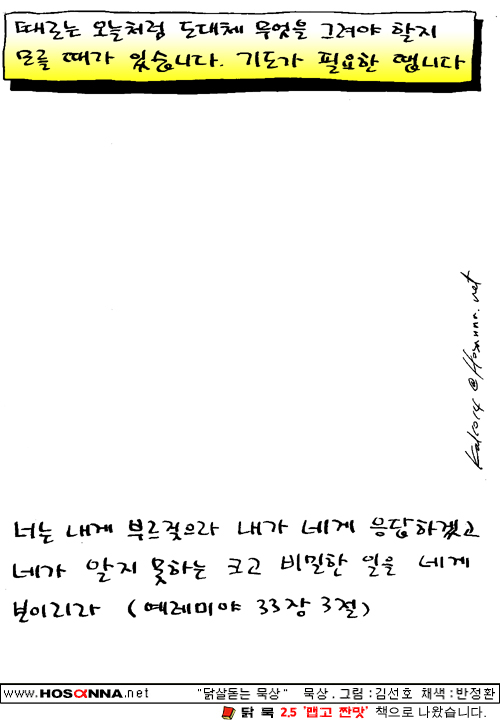 때로는 오늘처럼 도대체 무엇을 그려야 할지
모를 때가 있습니다. 기도가 필요한 땝니다
너는 내게 부르짖으라 내가 네게 응답하겠고
네가 알지 못하는 크고 비밀한 일을 네게
보이리라 (예레미야 33장 3절)
www.HOSANNA.net "닭살돋는 묵상" 묵상.그림:김선호 채색:반정환
닭 묵 2.5 '맵고 짠맛' 책으로 나왔습니다.